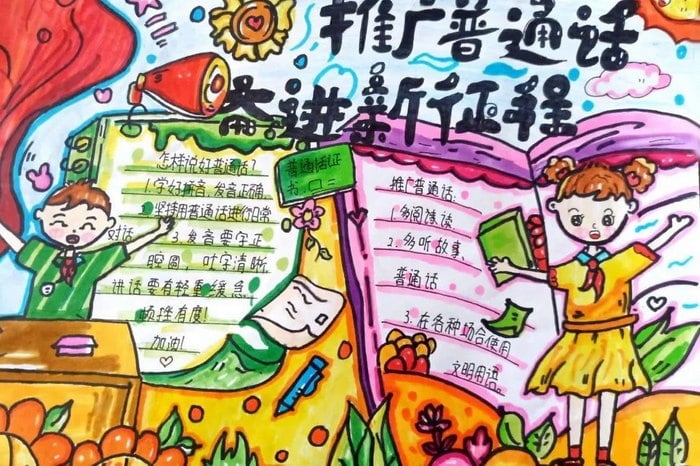 推广普通话
奋进新征程
怎样说好普通话?
1.学好拼音,发音正确
坚持用普通话进行日常
对话
3.发音要字正
腔圆,吐字清晰
讲话要有轻重缓急,
顿挫有度!
加油!
普通话证
书
推广普通话:
1.多阅读
2.多听故事、
普通话
3.在各种场合使用
文明用语。